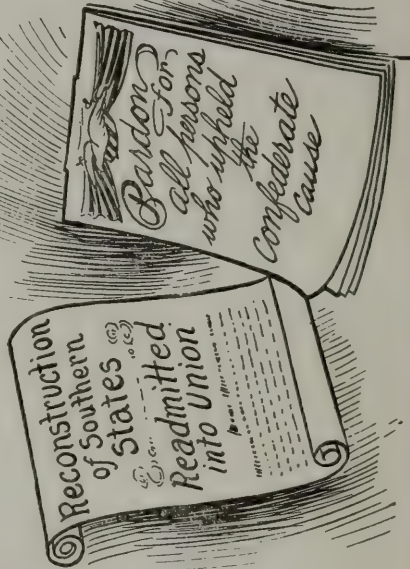 Reconstruction
of Southern
States
Readmitted
into Union
Pardon
for
all persons
who upheld
the
Confederate
cause